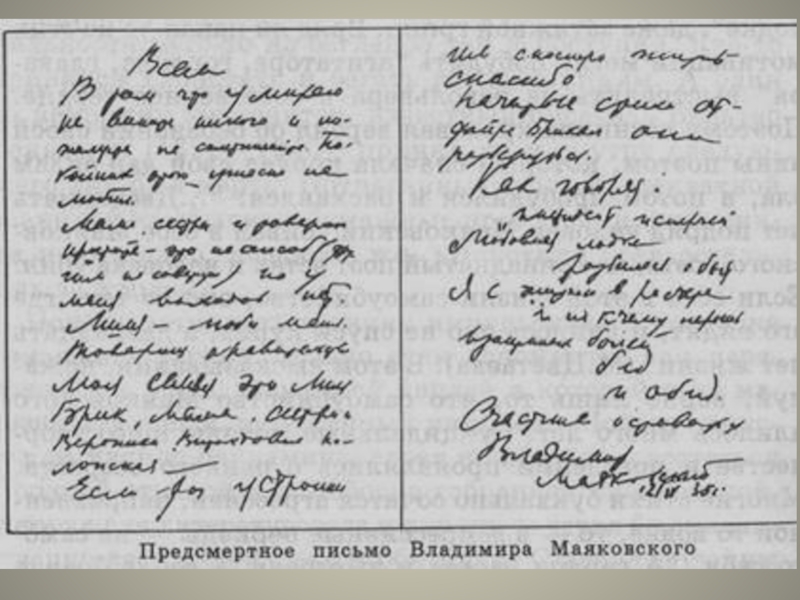 Всем
В том что умираю
не вините никого и по-
жалуйста не сплетничайте. По-
койник этого ужасно не
любил.
Мама, сестры и товари-
щи, простите – это не способ (дру-
гим не советую) но у
меня выходов нет.
Лиля – люби меня.
Товарищ правительство
моя семья это Лиля
Брик, мама, сестры и
Вероника Витольдовна По-
лонская
Если ты устроишь
спасибо
Начатые стихи от-
дайте Брикам они
разберутся.
Как говорят.
инцидент исперчен
Любовная лодка
разбилась о быт
Я с жизнью в расчете
и не к чему перечень
взаимных болей
бед
и обид
Счастливо оставаться
Владимир
Маяковский
12/IV 30 г.
Предсмертное письмо Владимира Маяковского